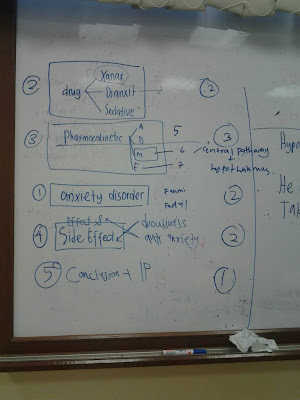 Xanax
② drug Dranxit ②
Sedative
③ Pharmacokinetic A 5 ③
D
M 6 central pathway
+
E 7 hypothalamus
① anxiety disorder ②
Effect of
④ Side Effect drowsiness ②
anti anxiety
⑤ Conclusion + IP ①
Hypo
He
Tak